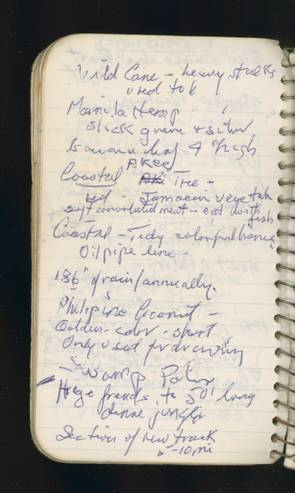 Wild Cane - heavy stalks
used to
Manila Hemp
slick green & silver
banana leaf 9' high
AKee
Coastal Tree -
red - Jamacin vegetab
soft convoluted meat - eat with
fish
Coastal - Tidy colorful homes
Oil pipe line -
186" of rain/annually.
Philipine Coconut -
Golden - color - short
Only used for drinking
Swamp Palm
Huge fronds, to 50' long
dense jungle
Section of new track
5-10 mi